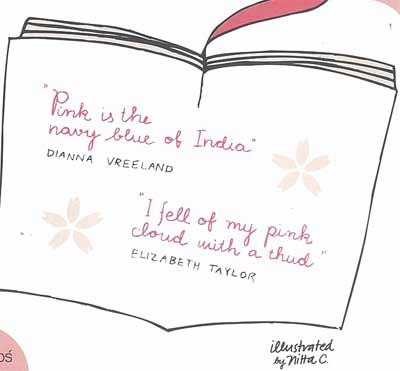 "Pink is the
navy blue of India"
DIANNA VREELAND
"I fell of my pink
cloud with a thud"
ELIZABETH TAYLOR
illustrated
by Nitta C.